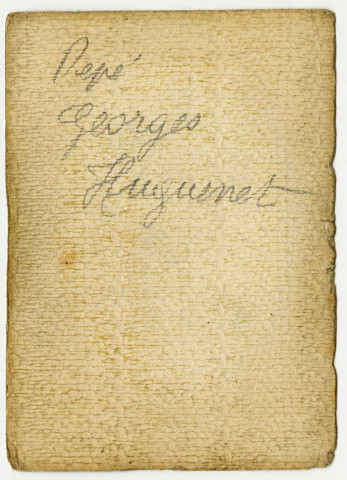 Pepé
Georges
Huguenet